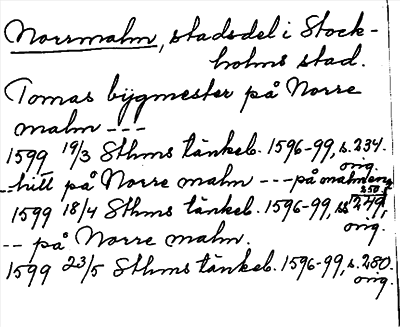 Norrmalm, stadsdel i Stock-
holms stad.
Tomas bygmester på Norre
malm ---
1599 19/3 Sthms tänkeb. 1596-99, s. 234.
orig.
--hitt på Norre malm --- på malmens
250
1599 18/4 Sthms tänkeb. 1596-99, ss 249,
orig.
-- på Norre malm.
1599 23/5 Sthms tänkeb. 1596-99, s. 280.
orig.